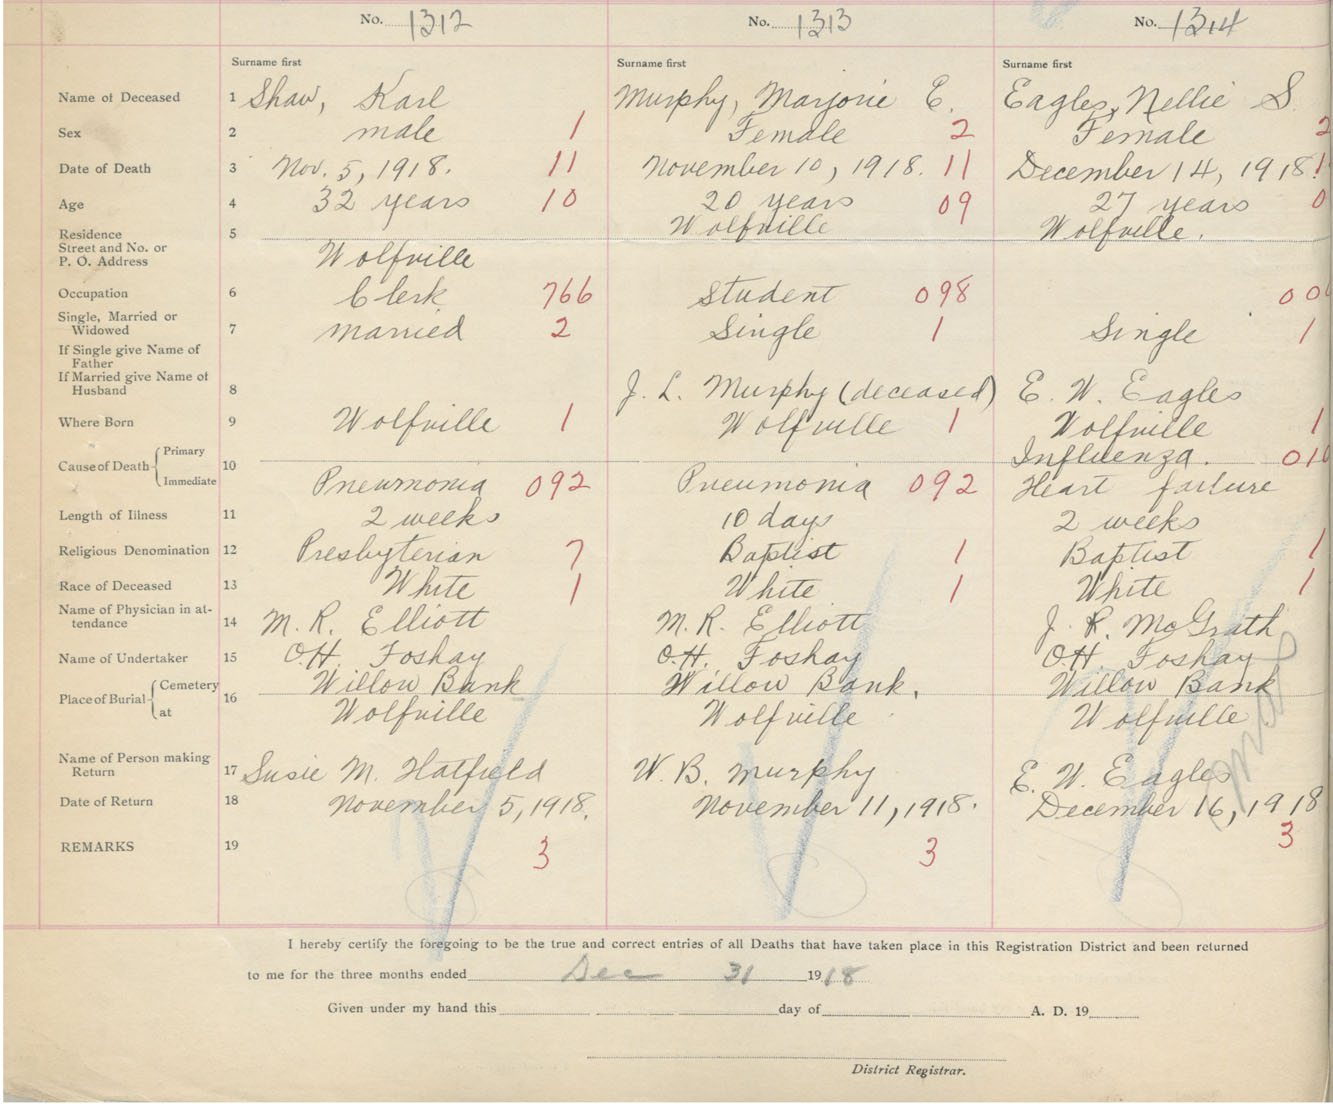 No. 1312 No. 1313 No. 1314
Surname first Surname first Surname first
Name of Deceased 1 Shaw, Karl Murphy, Marjorie E. Eagles, Nellie S.
Sex 2 male 1 Female 2 Female 2
Date of Death 3 Nov. 5, 1918. 11 November 10, 1918. 11 December 14, 1918. 1
Age 4 32 years 10 20 years 09 27 years 0
Residence 5 Wolfville Wolfville.
Street and No. or
P. O. Address Wolfville
Occupation 6 Clerk 766 Student 098 00
Single, Married or
Widowed 7 married 2 Single 1 Single 1
If Single give Name of
Father
If Married give Name of
Husband 8 J. L. Murphy (deceased) E. W. Eagles
Where Born 9 Wolfville 1 Wolfville 1 Wolfville 1
Cause of Death Primary 10 Influenza. 010
Immediate Pneumonia 092 Pneumonia 092 Heart failure
Length of Illness 11 2 weeks 10 days 2 weeks
Religious Denomination 12 Presbyterian 7 Baptist 1 Baptist 1
Race of Deceased 13 White 1 White 1 White 1
Name of Physician in at-
tendance 14 M. R. Elliott M. R. Elliott J. R. McGrath
Name of Undertaker 15 O.H. Foshay O.H. Foshay O.H. Foshay
Place of Burial Cemetery 16 Willow Bank Willow Bank. Willow Bank
at Wolfville Wolfville Wolfville
Name of Person making
Return 17 Susie M. Hatfield W. B. Murphy E. W. Eagles
Date of Return 18 November 5, 1918. November 11, 1918. December 16, 1918
REMARKS 19 3 3 3
I hereby certify the foregoing to be the true and correct entries of all Deaths that have taken place in this Registration District and been returned
to me for the three months ended Dec 31 1918
Given under my hand this day of A. D. 19
District Registrar.